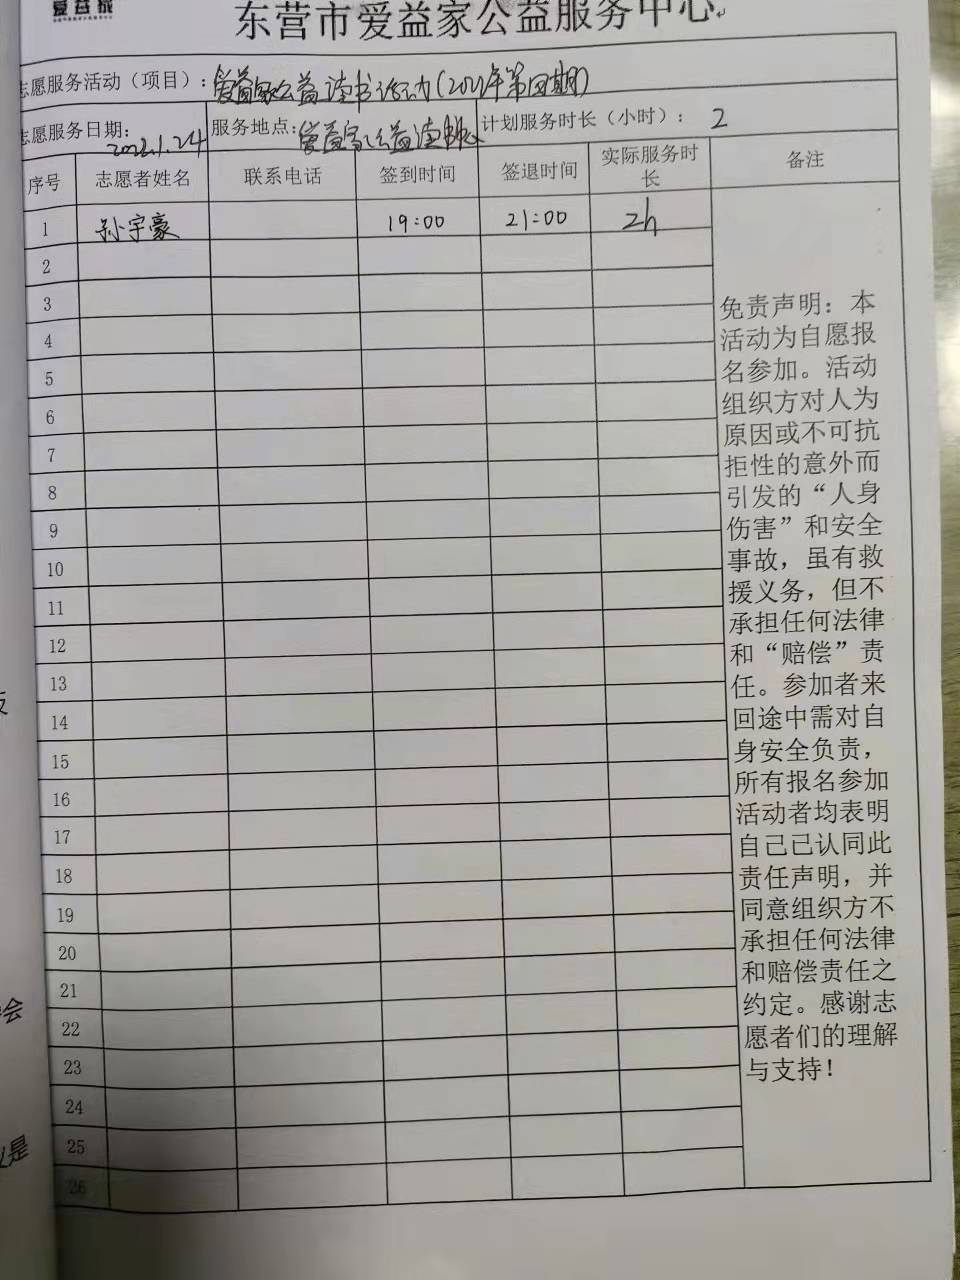 爱益家
东营市爱益家公益服务中心
志愿服务活动（项目）：爱益家公益读书活动(2022年第四期)
志愿服务日期：2022.1.24 服务地点：爱益家公益读书 计划服务时长（小时）： 2
序号 志愿者姓名 联系电话 签到时间 签退时间 实际服务时长 备注
1 孙宇豪 19:00 21:00 2h
2
3
4
5
6
7
8
9
10
11
12
13
14
15
16
17
18
19
20
21
22
23
24
25
26
免责声明：本
活动为自愿报
名参加。活动
组织方对人为
原因或不可抗
拒性的意外而
引发的“人身
伤害”和安全
事故，虽有救
援义务，但不
承担任何法律
和“赔偿”责
任。参加者来
回途中需对自
身安全负责，
所有报名参加
活动者均表明
自己已认同此
责任声明，并
同意组织方不
承担任何法律
和赔偿责任之
约定。感谢志
愿者们的理解
与支持！
会
议是